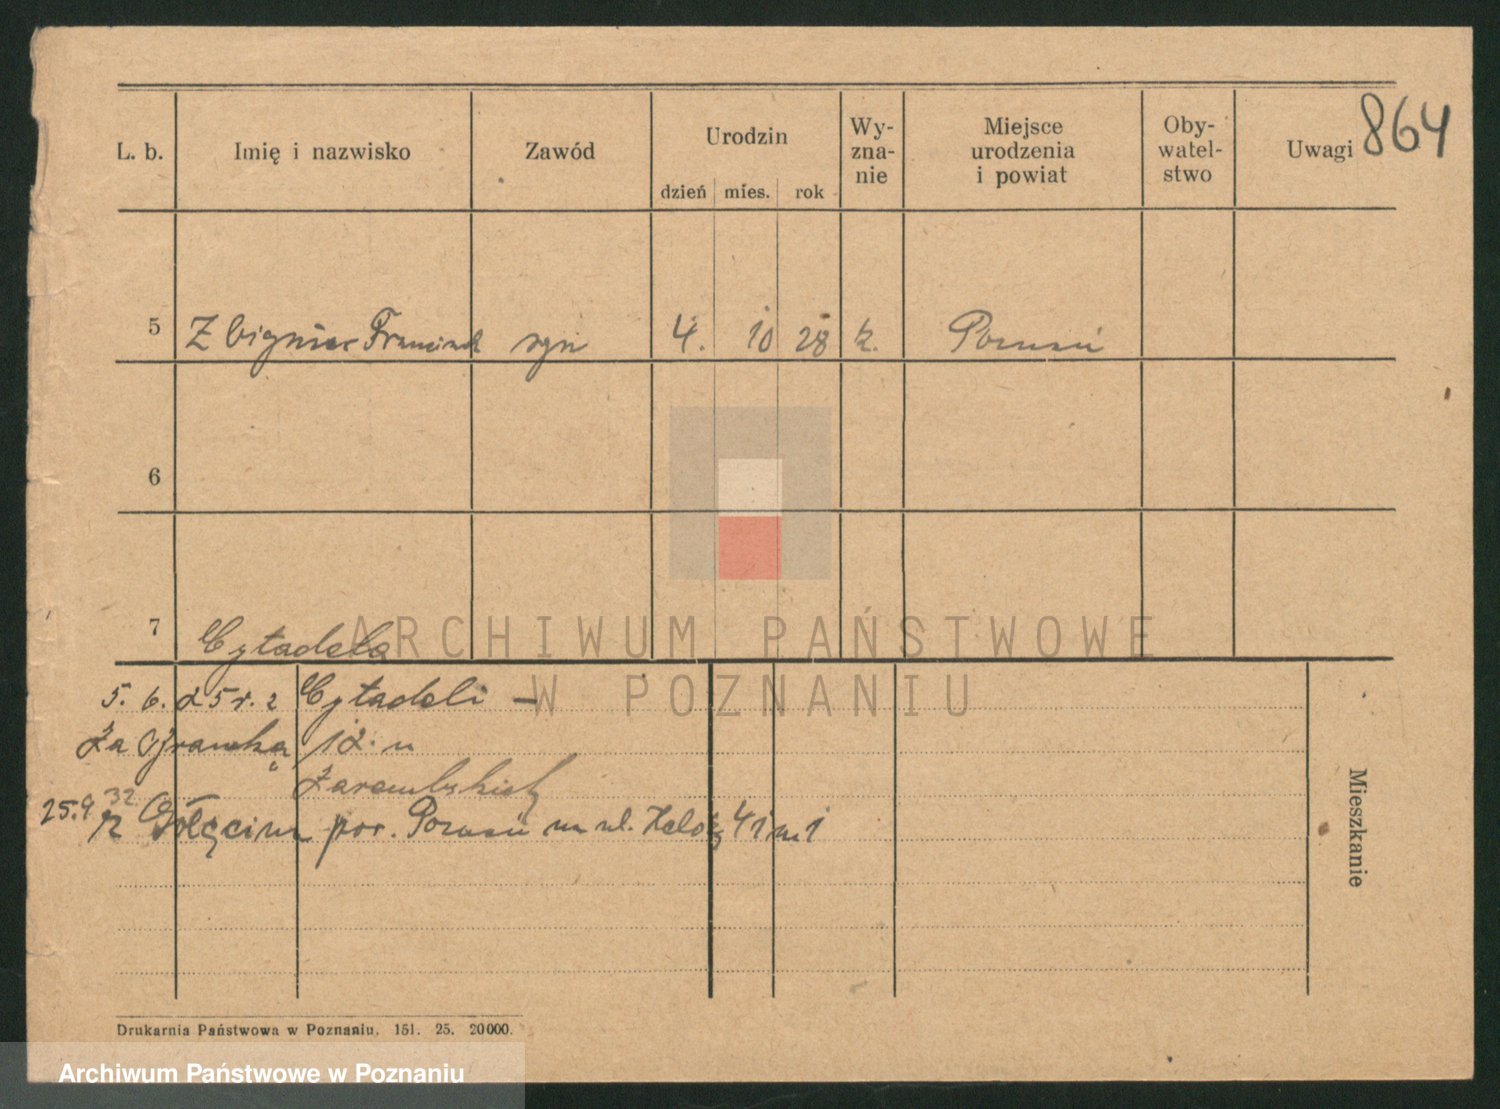 864
L. b. Imię i nazwisko Zawód Urodzin Wy- zna- nie Miejsce urodzenia i powiat Oby- watel- stwo Uwagi
dzień mies. rok
5 Zbigniew Franciszek syn 4. 10 28 k. Poznań
6
7
Cytadela
ARCHIWUM PAŃSTWOWE
W POZNANIU
5. 6. 25 r. z Cytadeli –
Za Gramką 12. u
25.9 32 z Gołęcin pow. Poznań na ul. 41 m 1
Mieszkanie
Drukarnia Państwowa w Poznaniu. 151. 25. 20000.
Archiwum Państwowe w Poznaniu